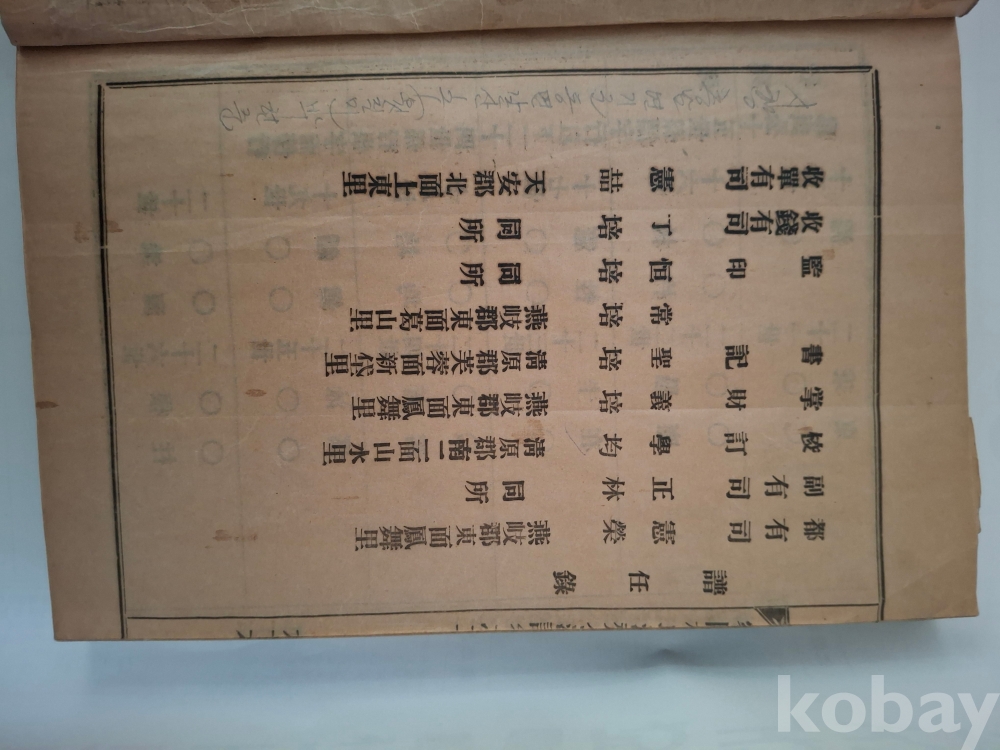 譜任錄
都有司 憲榮 燕岐郡東面鳳舞里
副有司 正林 同所
校訂 學均 淸原郡南二面山水里
掌財 義培 燕岐郡東面鳳舞里
書記 聖培 淸原郡芙蓉面新垈里
常培 燕岐郡東面葛山里
監印 恒培 同所
收錢有司 丁培 同所
收單有司 憲喆 天安郡北面上東里
kobay